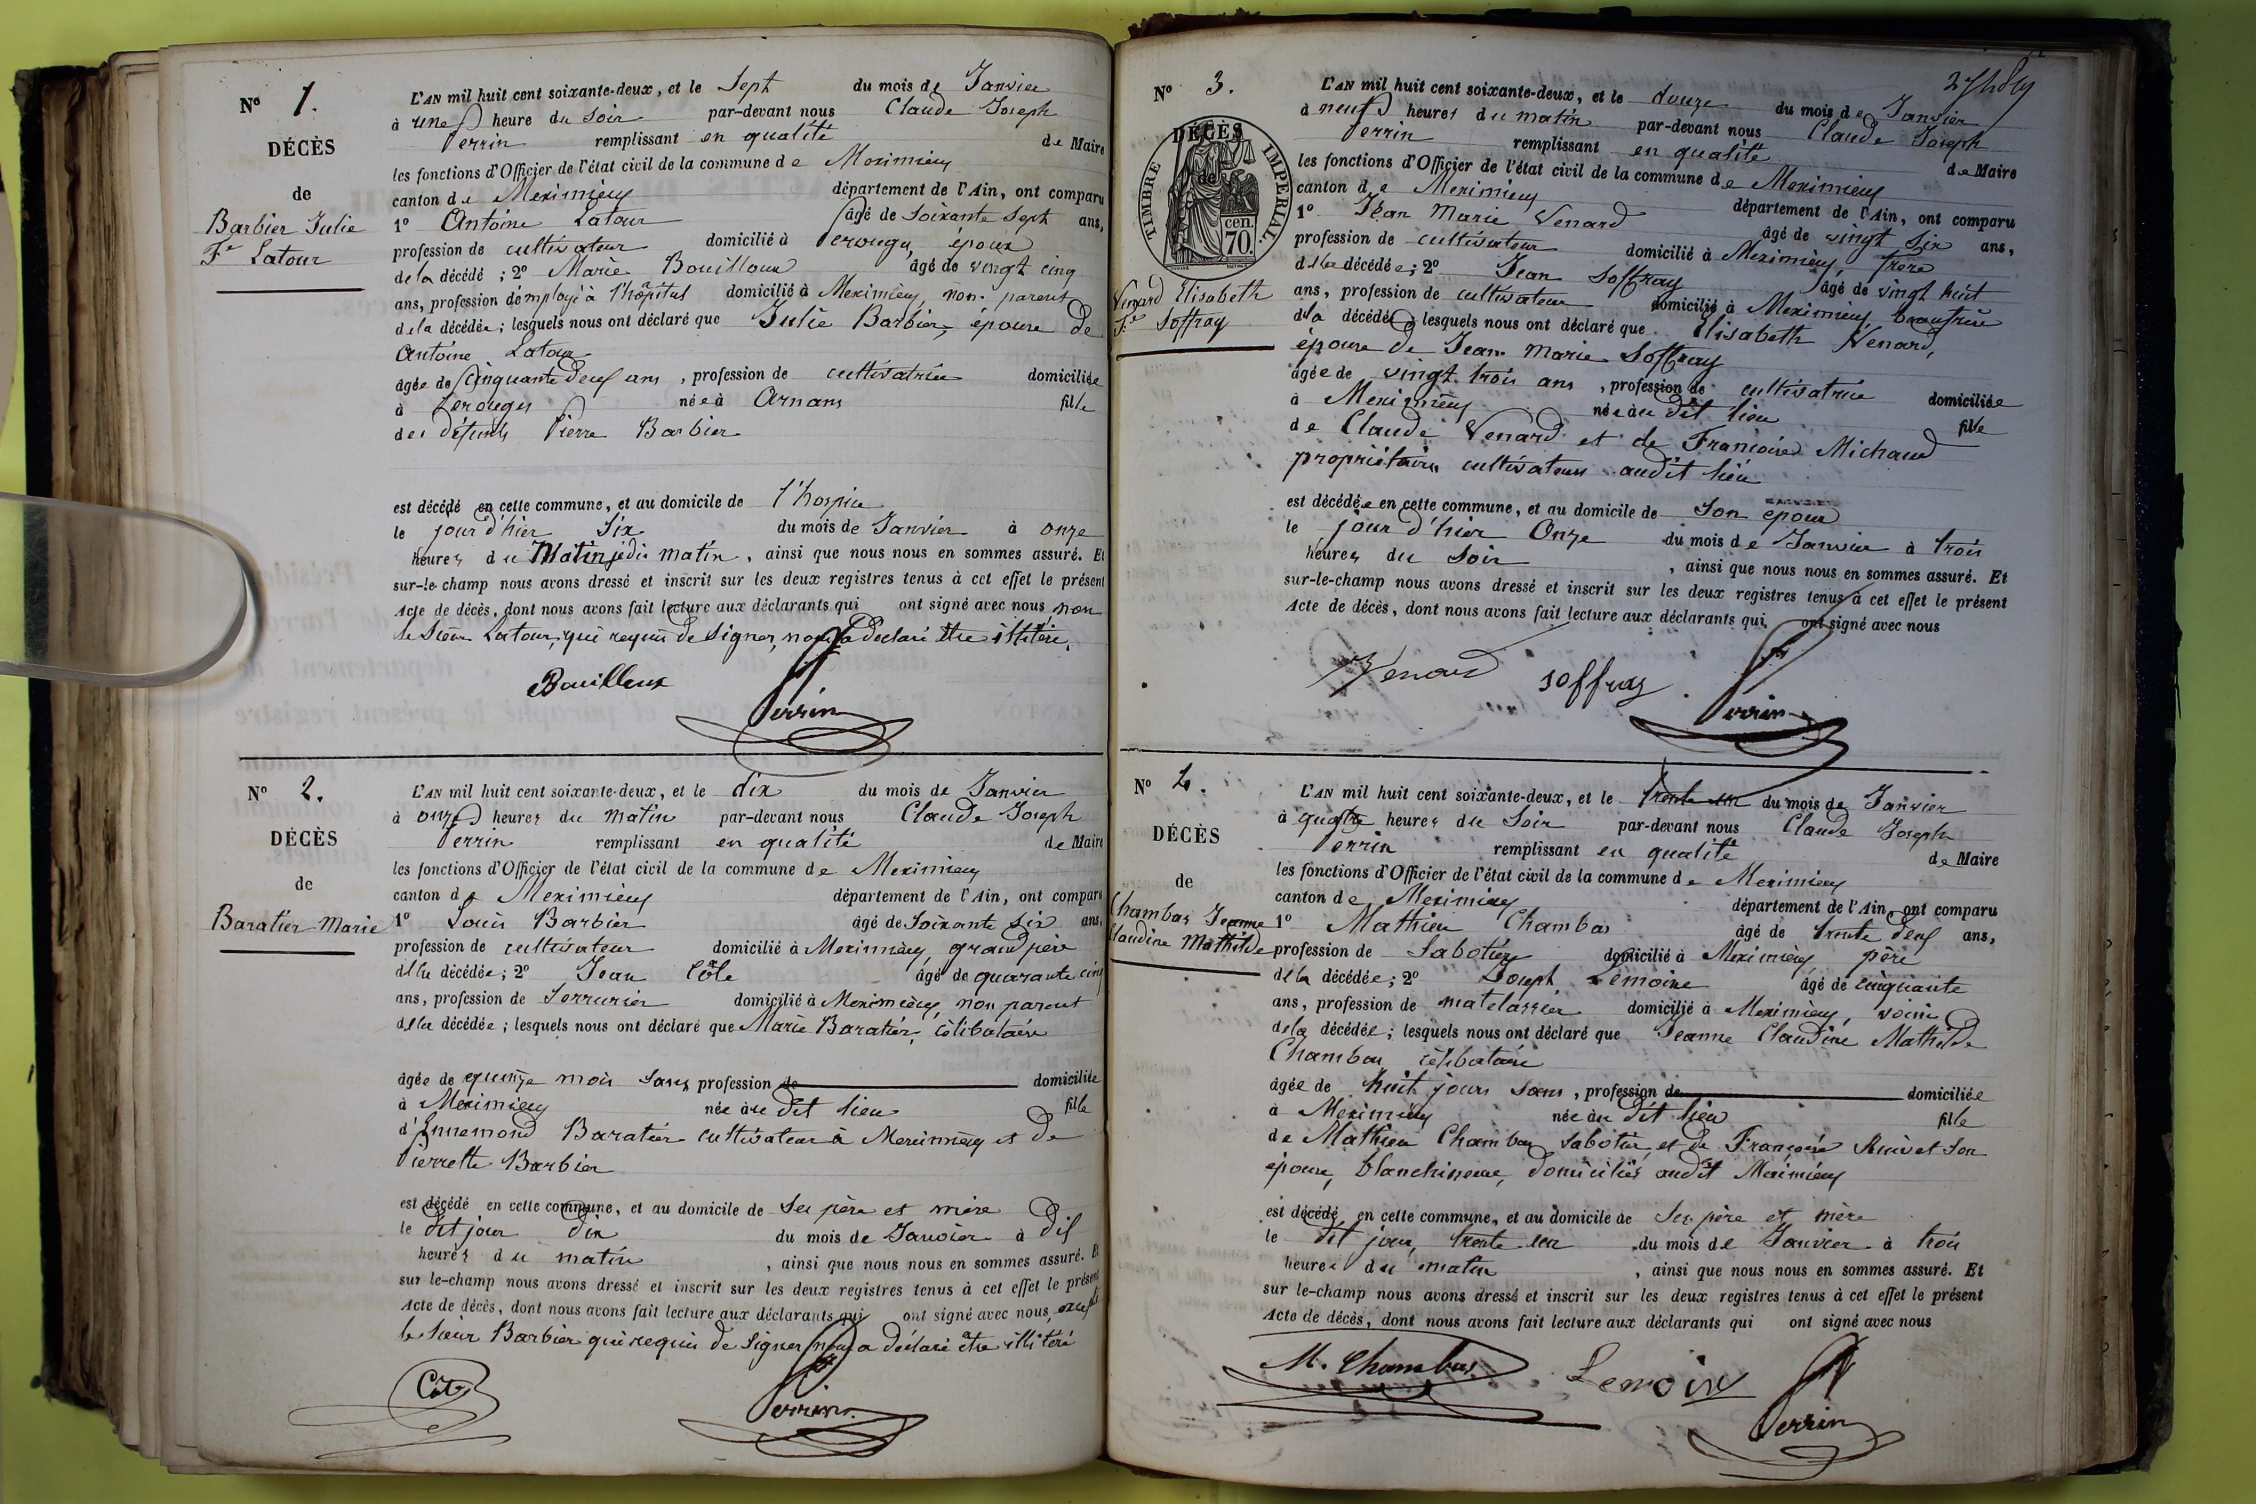 N° 1.
DÉCÈS
de
Barbier Julie
Fe Latour
L'AN mil huit cent soixante-deux, et le Sept du mois de Janvier
à une heure du Soir par-devant nous Claude Joseph
Perrin remplissant en qualité de Maire
les fonctions d'Officier de l'état civil de la commune de Meximieux
canton de Meximieux département de l'Ain, ont comparu
1° Antoine Latour âgé de soixante sept ans,
profession de cultivateur domicilié à Perouges, époux
de la décédé ; 2° Marie Bouilloux âgé de vingt cinq
ans, profession d'employé à l'hôpital domicilié à Meximieux, non parent
de la décédée ; lesquels nous ont déclaré que Julie Barbier, épouse de
Antoine Latour
âgée de Cinquante deux ans, profession de cultivatrice domiciliée
à Perouges née à Arnans fille
des défunts Pierre Barbier
est décédé en cette commune, et au domicile de l'hospice
le jour d'hier Six du mois de Janvier à onze
heures du Matin matin, ainsi que nous nous en sommes assuré. Et
sur-le-champ nous avons dressé et inscrit sur les deux registres tenus à cet effet le présent
Acte de décès, dont nous avons fait lecture aux déclarants qui ont signé avec nous non
le Sieur Latour, qui requis de Signer, nous a déclaré être illitéré.
Bouilloux
Perrin
N° 2.
DÉCÈS
de
Baratier Marie
L'AN mil huit cent soixante-deux, et le dix du mois de Janvier
à onze heures du matin par-devant nous Claude Joseph
Perrin remplissant en qualité de Maire
les fonctions d'Officier de l'état civil de la commune de Meximieux
canton de Meximieux département de l'Ain, ont comparu
1° Louis Barbier âgé de Soixante Six ans,
profession de cultivateur domicilié à Meximieux, grand père
de la décédée ; 2° Jean Côte âgé de quarante cinq
ans, profession de Serrurier domicilié à Meximieux, non parent
de la décédée ; lesquels nous ont déclaré que Marie Baratier, célibataire
âgée de quinze mois Sans profession de domiciliée
à Meximieux née au dit lieu fille
d'Ennemond Baratier cultivateur à Meximieux et de
Pierrette Barbier
est décédé en cette commune, et au domicile de Ses père et mère
le dit jour dix du mois de Janvier à dix
heures du matin, ainsi que nous nous en sommes assuré. Et
sur le-champ nous avons dressé et inscrit sur les deux registres tenus à cet effet le présent
Acte de décès, dont nous avons fait lecture aux déclarants qui ont signé avec nous, excepté
le Sieur Barbier qui requis de Signer nous a déclaré être illitéré
Côte
Perrin
N° 3.
DÉCÈS
de
TIMBRE IMPÉRIAL
cen.
70.
Venard Elisabeth
Fe Soffray
L'AN mil huit cent soixante-deux, et le douze du mois de Janvier
à neuf heures du matin par-devant nous Claude Joseph
Perrin remplissant en qualité de Maire
les fonctions d'Officier de l'état civil de la commune de Meximieux
canton de Meximieux département de l'Ain, ont comparu
1° Jean Marie Venard âgé de vingt Six ans,
profession de cultivateur domicilié à Meximieux, frère
de la décédée ; 2° Jean Soffray âgé de vingt huit
ans, profession de cultivateur domicilié à Meximieux, beaufrère
de la décédée lesquels nous ont déclaré que Elisabeth Venard,
épouse de Jean Marie Soffray
âgée de vingt trois ans, profession de cultivatrice domiciliée
à Meximieux née au dit lieu fille
de Claude Venard et de Françoise Michaud
propriétaires cultivateurs audit lieu
est décédée en cette commune, et au domicile de Son époux
le jour d'hier Onze du mois de Janvier à trois
heures du Soir, ainsi que nous nous en sommes assuré. Et
sur-le-champ nous avons dressé et inscrit sur les deux registres tenus à cet effet le présent
Acte de décès, dont nous avons fait lecture aux déclarants qui ont signé avec nous
Venard Soffray
Perrin
N° 4.
DÉCÈS
de
Chambas Jeanne
Claudine Mathilde
L'AN mil huit cent soixante-deux, et le trente un du mois de Janvier
à quatre heures du Soir par-devant nous Claude Joseph
Perrin remplissant en qualité de Maire
les fonctions d'Officier de l'état civil de la commune de Meximieux
canton de Meximieux département de l'Ain, ont comparu
1° Mathieu Chambas âgé de trente deux ans,
profession de Sabotier domicilié à Meximieux, père
de la décédée ; 2° Joseph Lemoine âgé de cinquante
ans, profession de matelassier domicilié à Meximieux, voisin
de la décédée ; lesquels nous ont déclaré que Jeanne Claudine Mathilde
Chambas célibataire
âgée de huit jours sans, profession de domiciliée
à Meximieux née au dit lieu fille
de Mathieu Chambas Sabotier et de Françoise Son
épouse, blanchisseuse, domiciliés audit Meximieux
est décédé en cette commune, et au domicile de Ses père et mère
le dit jour, trente un du mois de Janvier à trois
heures du matin, ainsi que nous nous en sommes assuré. Et
sur le-champ nous avons dressé et inscrit sur les deux registres tenus à cet effet le présent
Acte de décès, dont nous avons fait lecture aux déclarants qui ont signé avec nous
M. Chambas Lemoine
Perrin